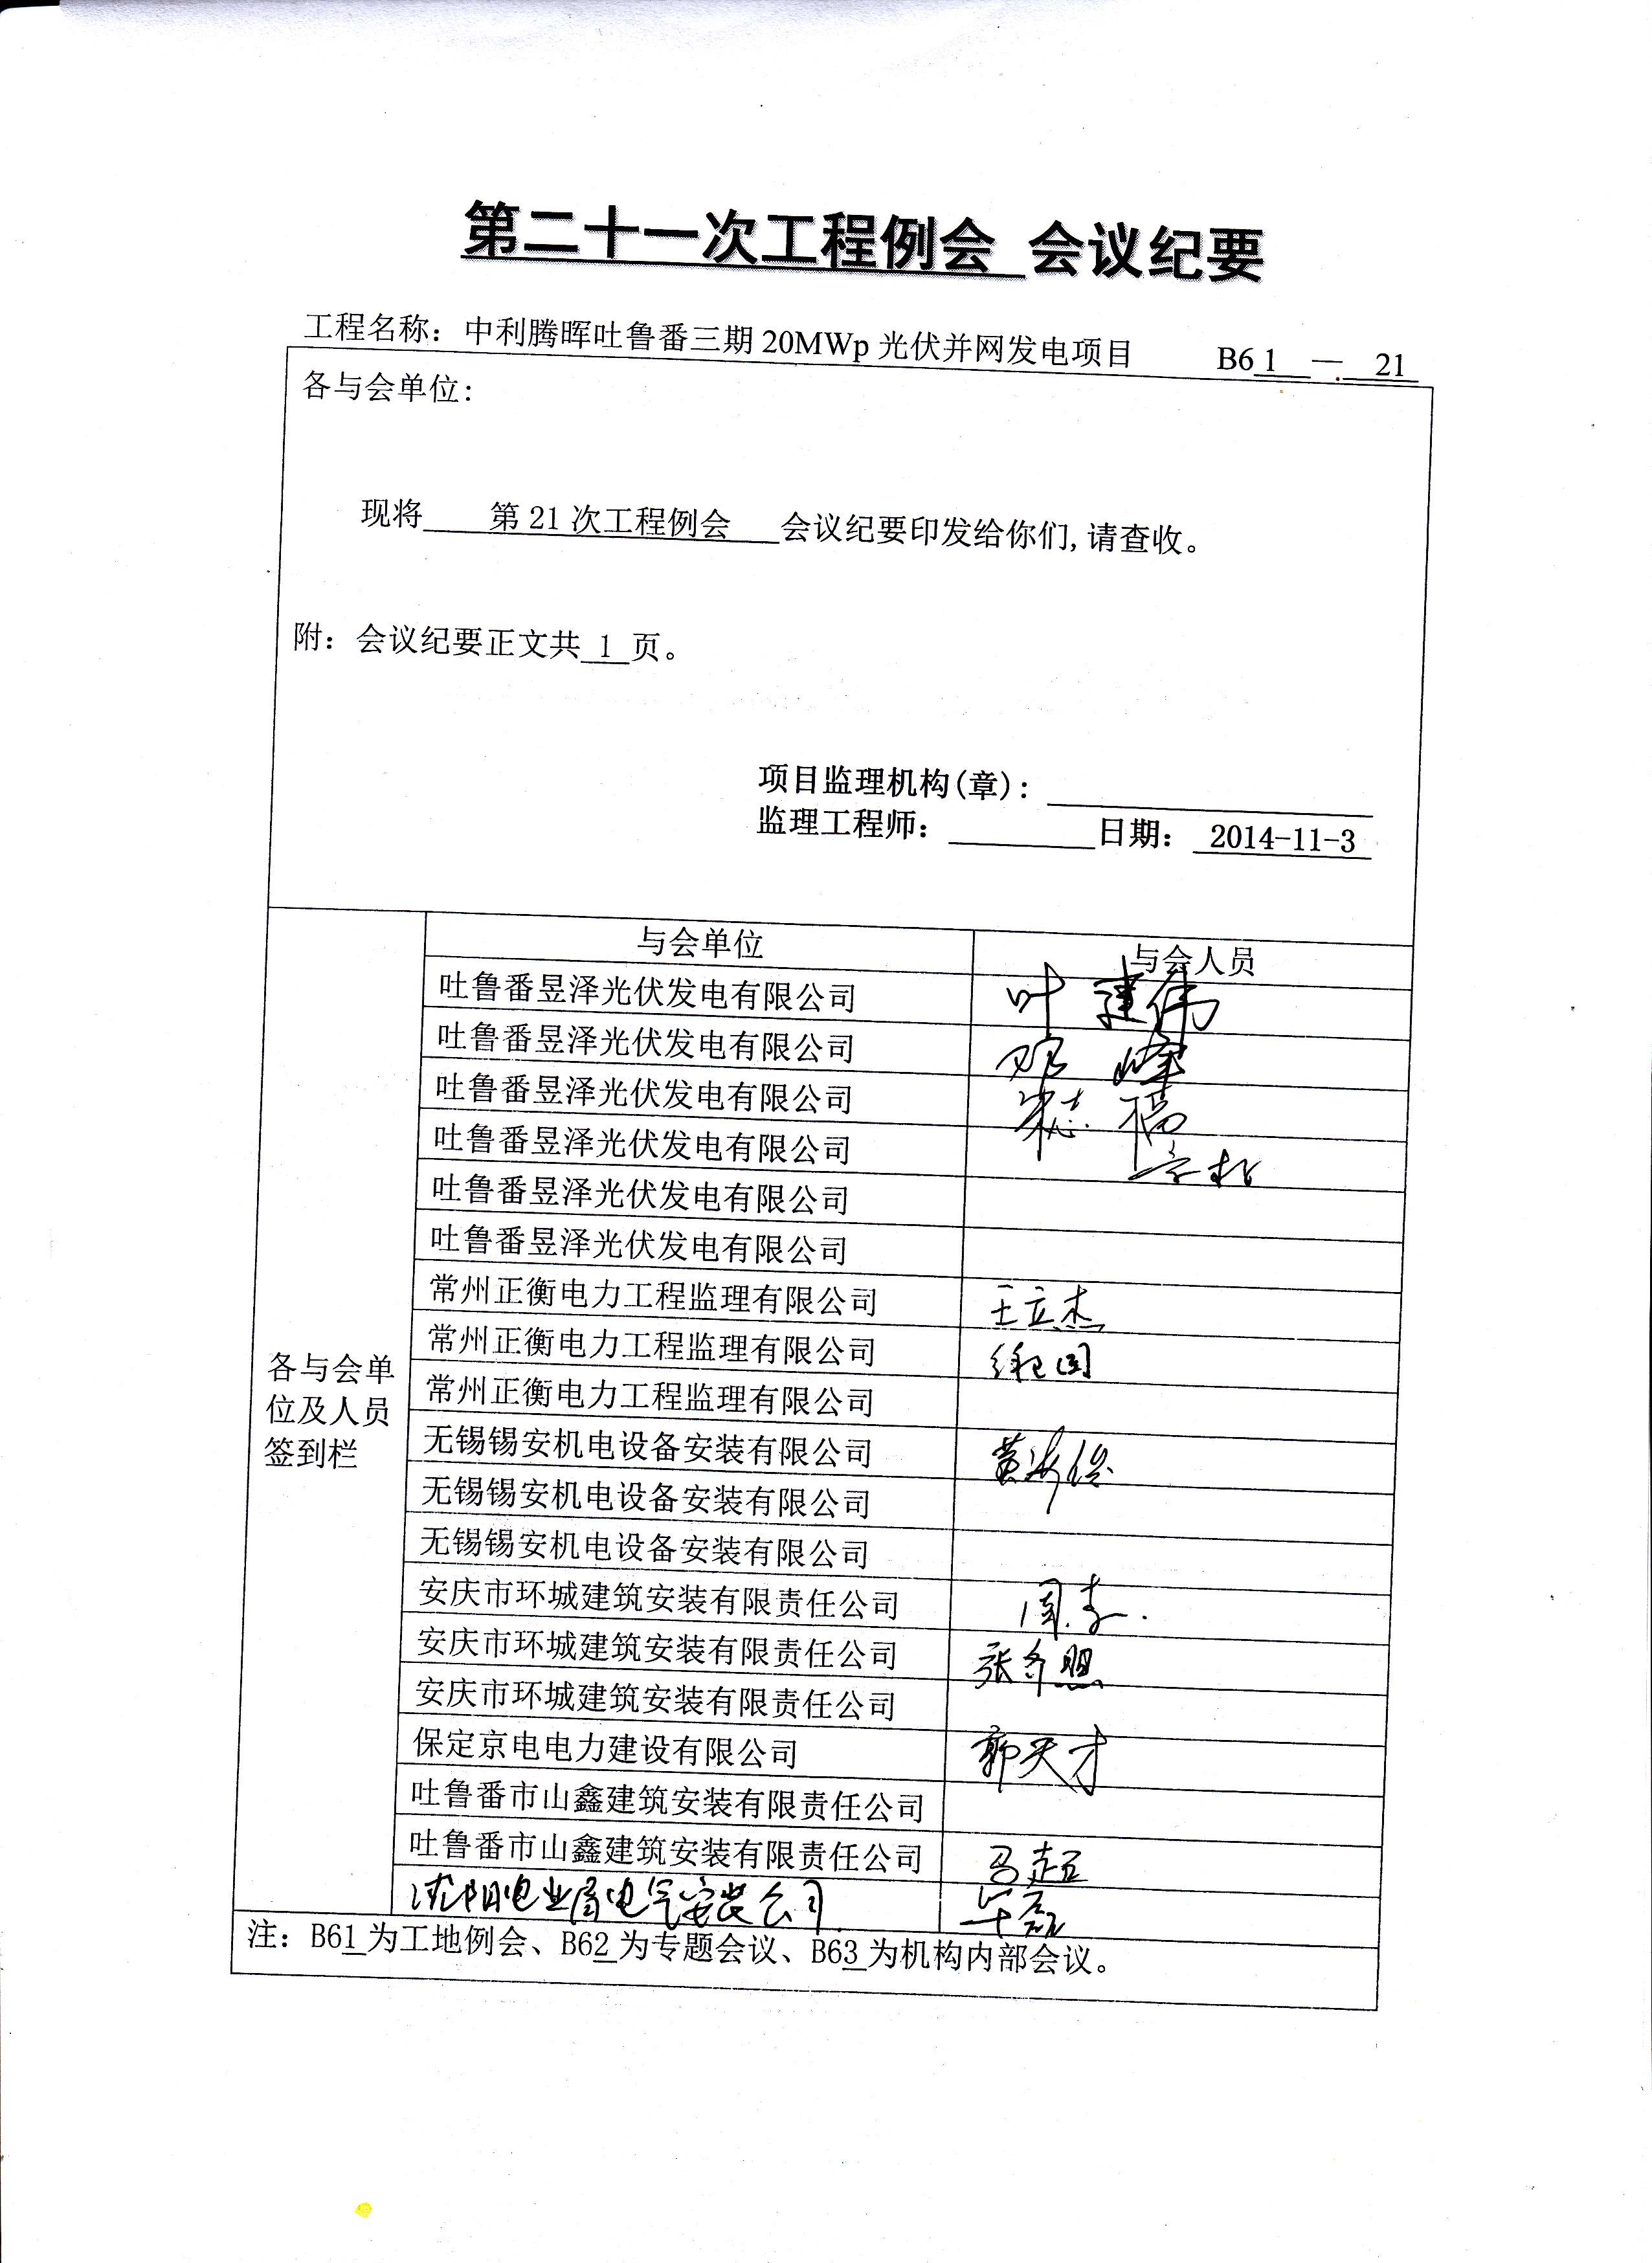 第二十一次工程例会 会议纪要
工程名称：中利腾晖吐鲁番三期20MWp光伏并网发电项目 B6 1 — 21
各与会单位：
现将 第21次工程例会 会议纪要印发给你们，请查收。
附：会议纪要正文共 1 页。
项目监理机构(章)：
监理工程师： 日期： 2014-11-3
各与会单位及人员签到栏
与会单位 与会人员
吐鲁番昱泽光伏发电有限公司 叶建伟
吐鲁番昱泽光伏发电有限公司 峰
吐鲁番昱泽光伏发电有限公司
吐鲁番昱泽光伏发电有限公司
吐鲁番昱泽光伏发电有限公司
吐鲁番昱泽光伏发电有限公司
常州正衡电力工程监理有限公司 王立杰
常州正衡电力工程监理有限公司
常州正衡电力工程监理有限公司
无锡锡安机电设备安装有限公司 黄海
无锡锡安机电设备安装有限公司
无锡锡安机电设备安装有限公司
安庆市环城建筑安装有限责任公司 周
安庆市环城建筑安装有限责任公司 张
安庆市环城建筑安装有限责任公司
保定京电电力建设有限公司 郭天才
吐鲁番市山鑫建筑安装有限责任公司
吐鲁番市山鑫建筑安装有限责任公司 马超
沈阳电业局电气安装公司 毕磊
注：B61为工地例会、B62为专题会议、B63为机构内部会议。